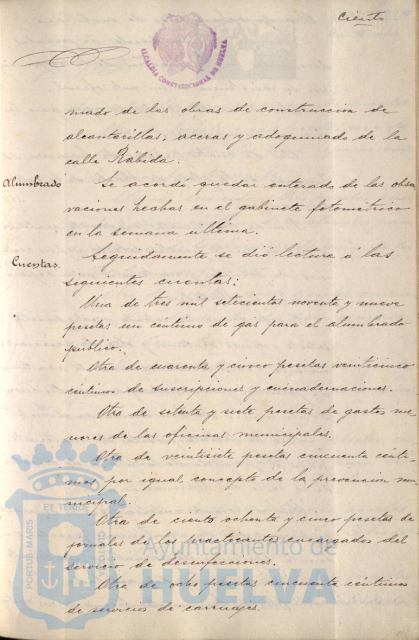 Ciento
ALCALDIA CONSTITUCIONAL DE HUELVA
mado de las obras de construcción de
alcantarillas, aceras y adoquinado de la
calle Rábida.
Alumbrado
Se acordó quedar enterado de las obser
vaciones hechas en el gabinete fotométrico
en la semana última.
Cuentas.
Seguidamente se dió lectura á las
siguientes cuentas:
Una de tres mil setecientas noventa y nueve
pesetas un centimo de gas para el alumbrado
público.
Otra de cuarenta y cinco pesetas veinticinco
centimos de suscripciones y encuadernaciones.
Otra de setenta y siete pesetas de gastos me
nores de las oficinas municipales.
Otra de veintisiete pesetas cincuenta cénti
mos por igual concepto de la prevención mu
nicipal.
Otra de ciento ochenta y cinco pesetas de
jornales de los practicantes encargados del
servicio de desinfecciones.
Otra de ocho pesetas cincuenta centimos
de servicios de carruajes.
PORTUS MARIS
ET TERRÆ
CUSTODIA
Ayuntamiento de
HUELVA